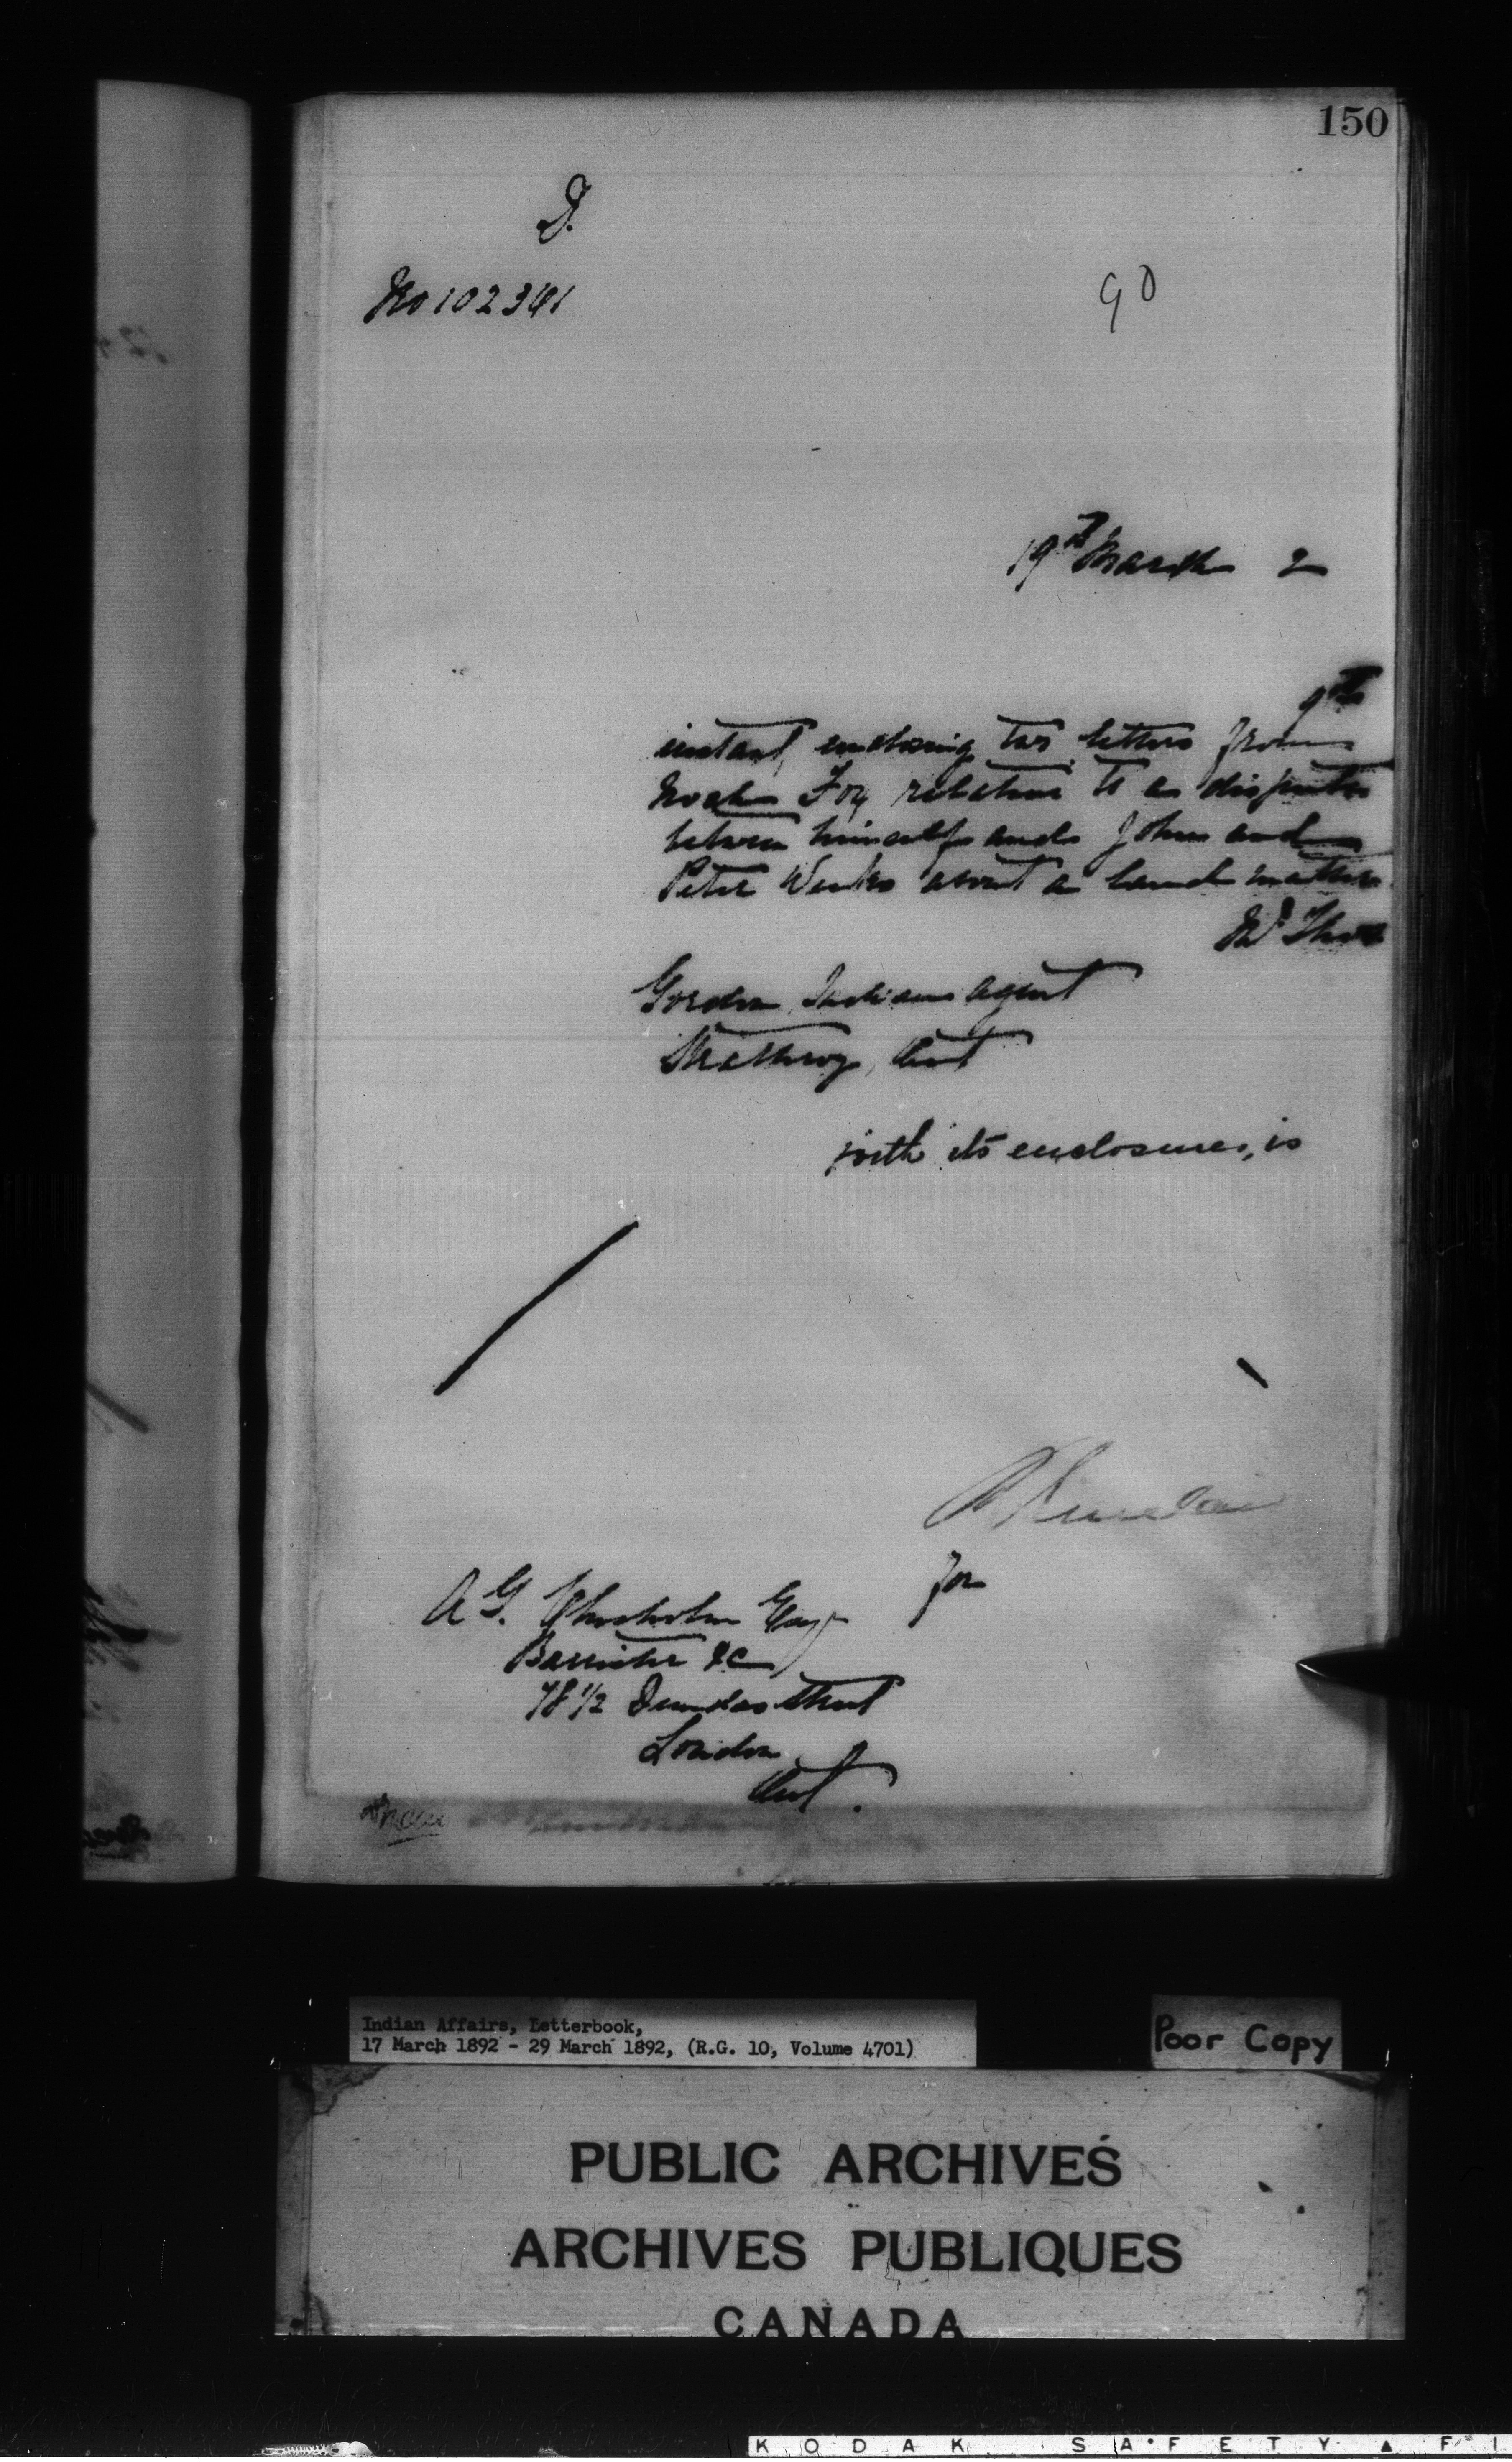 150
D.
No 102341
90
19th March 2
9th
instant, enclosing two letters from
Noah Fox relative to a dispute
between himself and John and
Peter about a land matter
Mr Thos
Gordon Indian agent
Strathroy, Ont
with its enclosures, is
for
A G. Chisholm Esq
Barrister &c
78 1/2 Dundas Street
London
Ont.
Indian Affairs, Letterbook,
17 March 1892 - 29 March 1892, (R.G. 10, Volume 4701)
Poor Copy
PUBLIC ARCHIVES
ARCHIVES PUBLIQUES
CANADA
KODAK SAFETY ▲ FI